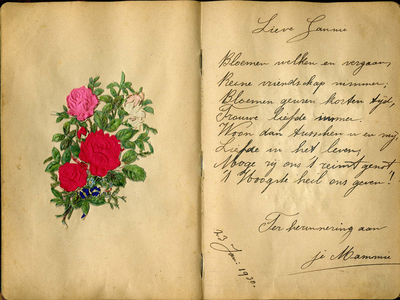 Lieve Jannie
Bloemen welken en vergaan,
Reine vriendschap nimmer;
Bloemen geuren korten tijd,
Trouwe liefde immer.
Woon dan tusschen u en mij
Liefde in het leven,
Moge zij ons 't reinst genot,
't Hoogste heil ons geven!
Ter herinnering aan
je Mammie
23 Jan. 1930.